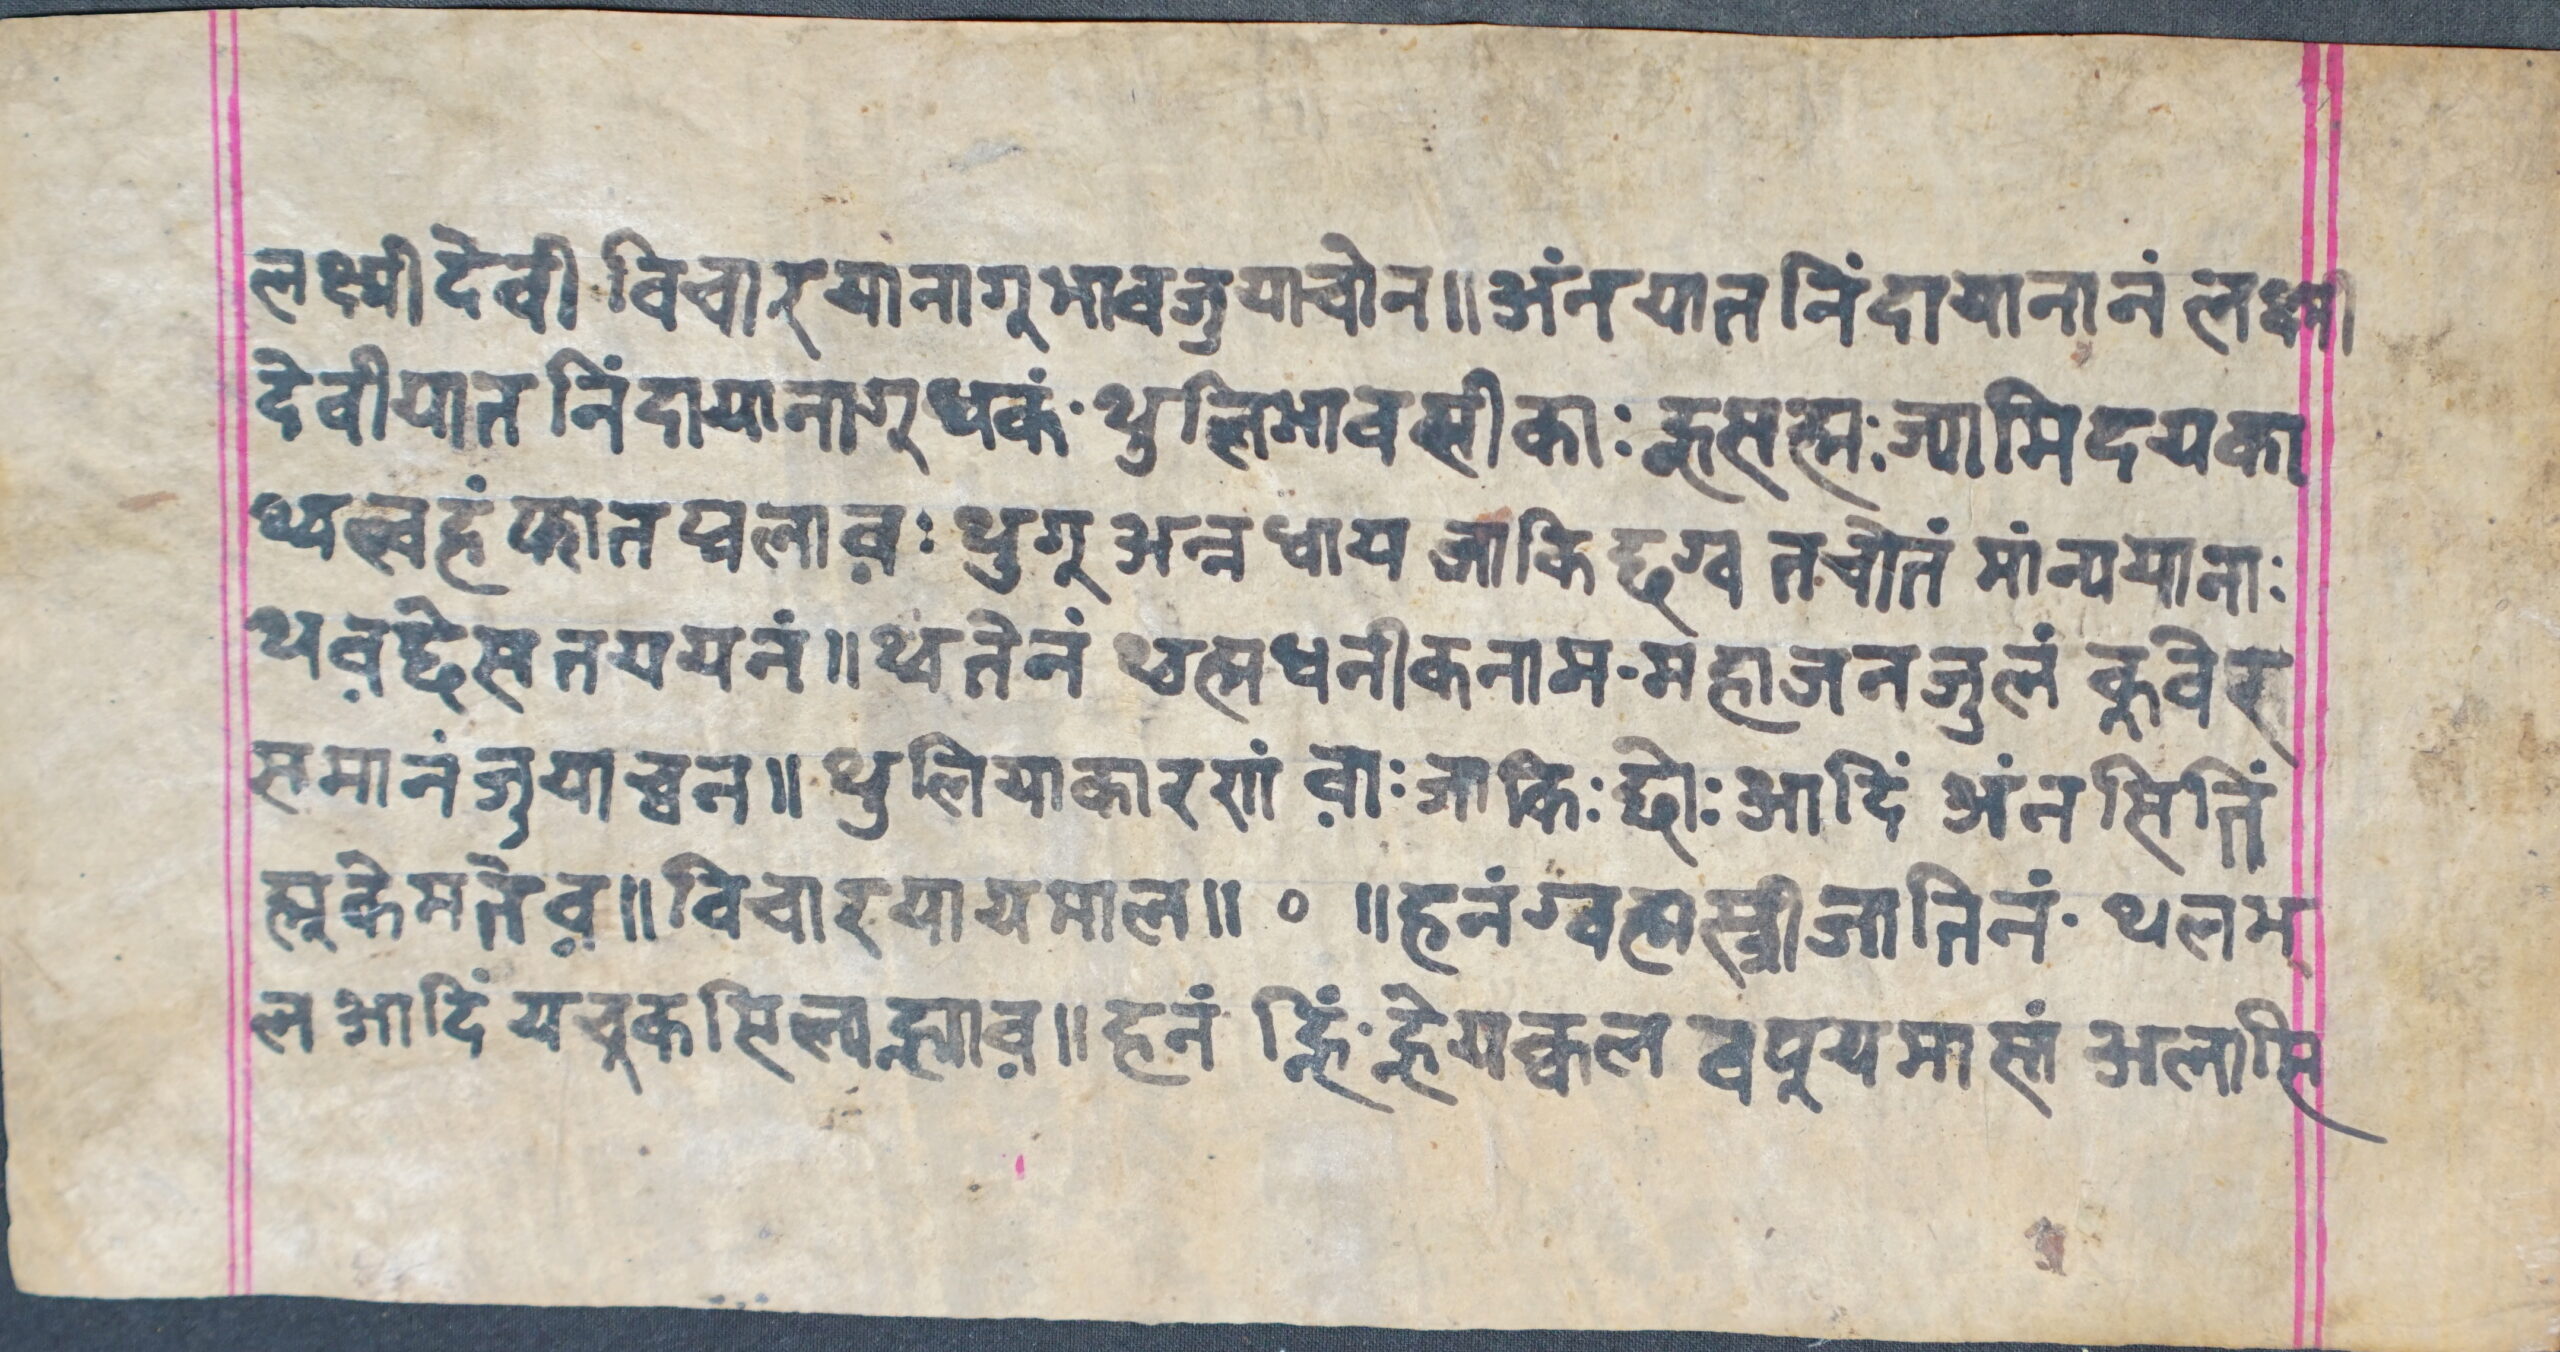 लक्ष्मी देवी विचार् यानागु भावजुयाचोन॥ अंनयात निंदायानानं लक्ष्मी
देवीयात निंदायानागु धकं· थुलिभावस्वीकाः ह्नसह्मः ज्यामिदयका
थ्वल्वहं फात प्वलाव़ः थुगु अन्न धाय जाकि छग्व तचोतं मांन्ययानाः
थव़छेस तययनं॥ थ्वतेनं थ्वह्मधनीकनाम·महाजनजुलं कुवेर
समानं जुयाच्वन॥ थुलियाकारणं व़ाः जाकिः छोः आदिं अंन सितिं
ह्लुकेमतेव़॥ विचारयायमाल॥ ० ॥ हनं ग्वह्मस्त्रीजातिनं· थलभ्
ल आदिं यचुकसिलाह्न्याव़॥ हनं ह्निं·ह्नेयक्वल वपुयमासां अलासि